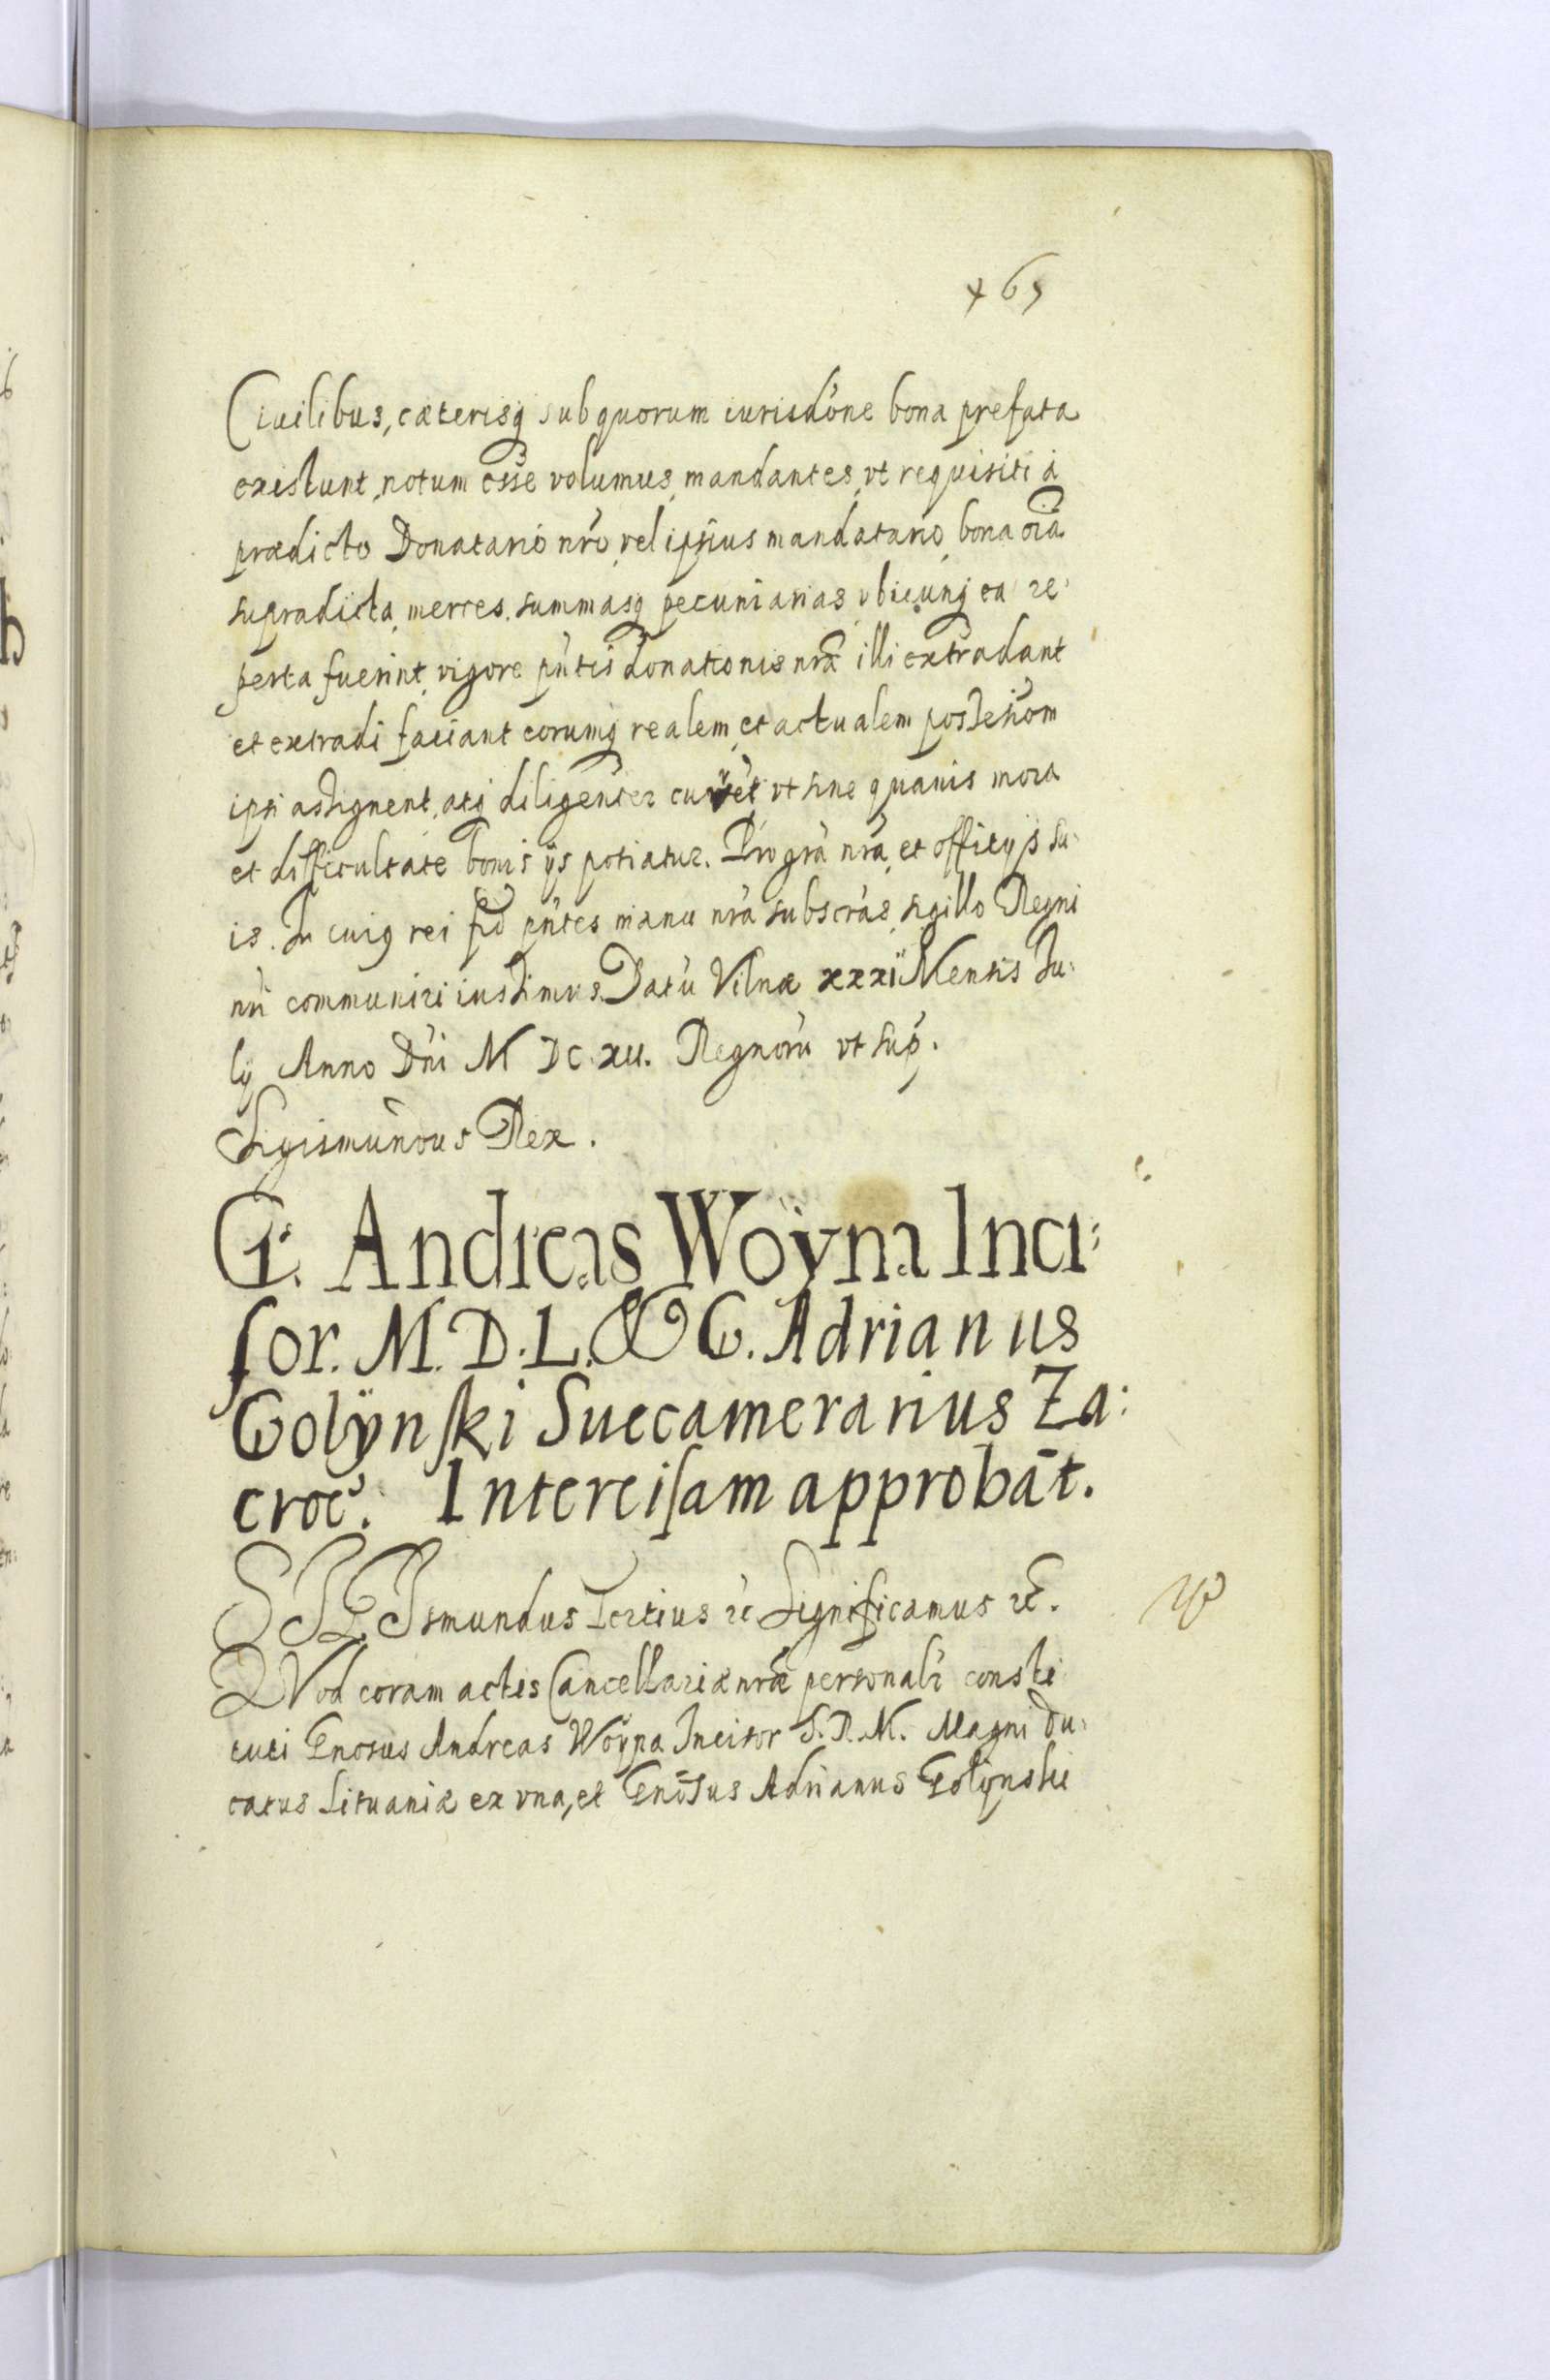 + 65
Ciuilibus, cæterisq; sub quorum iurisdōne bona prefata
existunt, notum esse volumus, mandantes, vt requisiti à
prædicto Donatario nrō, vel ipsius mandatario, bona oīa
supradicta, merces, summasq; pecuniarias, vbicunq; ea re-
perta fuerint, vigore pñtis donationis nræ illi extradant
et extradi faciant eorumq; realem, et actualem possessiom̄
ipsi assignent, atq; diligenter curēt, vt sine quauis mora
et difficultate bonis ijs potiatur. Pro grā nrā, et officijs su-
is. In cuiq rei fid pñtes manu nrā subscrās, sigillo Regni
nri communiri iussimus. Datū Vilnæ xxxi Mensis Iu-
lij Anno Dñi M DC. xii. Regnorū vt sup.
Sigismundus Rex.
G. Andreas Woÿna Inci-
sor. M. D. L. & G. Adrianus
Golÿnski Succamerarius Za:
croc: Intercisam approbāt.
SIGIsmundus Tertius rc Significamus rc.
QVod coram actis Cancellariæ nræ personalr consti
tuti Gnosus Andreas Woÿna Incisor S. R. M. Magni Du-
catus Lituaniæ ex vna, et Gnosus Adrianus Golijnski